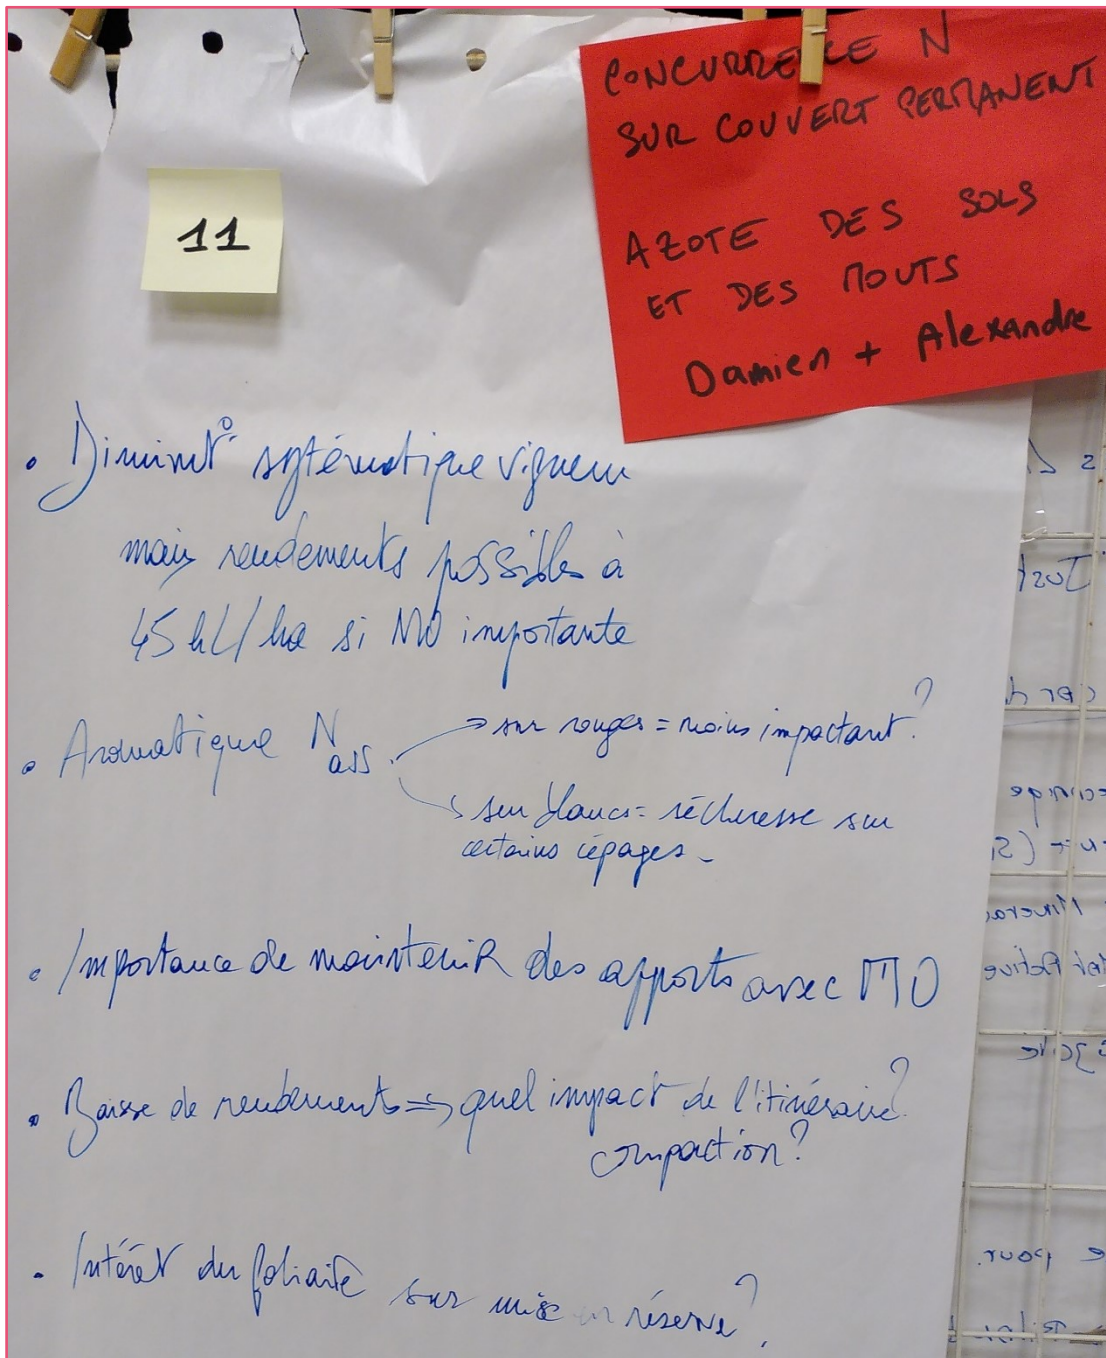 CONCURRENCE N
SUR COUVERT PERMANENT
AZOTE DES SOLS
ET DES MOUTS
Damien + Alexandre
11
• Diminut° systématique vigueur
mais rendements possibles à
45 hL/ha si MO importante
• Aromatique N ass.
→ sur rouges = moins impactant ?
→ sur blancs = sécheresse sur
certains cépages -
• Importance de maintenir des apports avec MO
• Baisse de rendements => quel impact de l'itinéraire ?
compaction ?
• Intérêt du foliaire sur mise en réserve ?